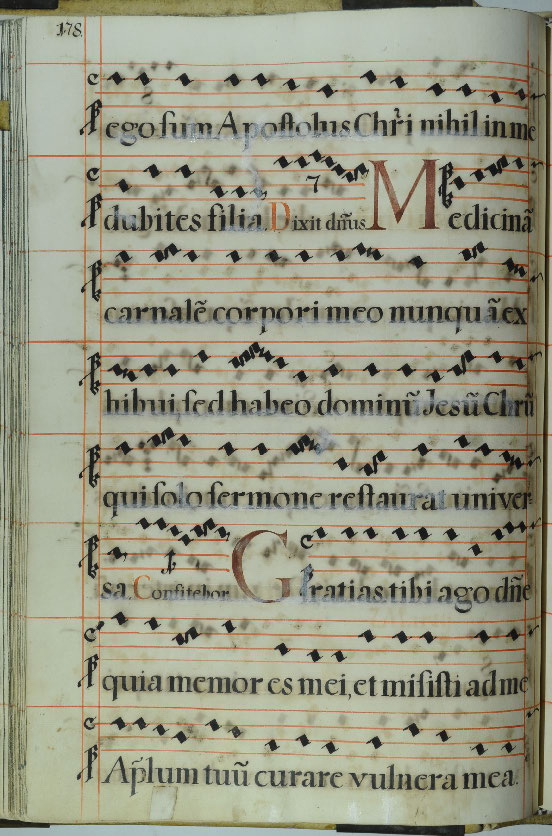 178.
ego sum Apostolus Chr̃i nihil in me
dubites filia. Dixit dñus Medicinã
carnalẽ corpori meo nunquã ex
hibui, sed habeo dominũ Jesũ Chrũ
qui solo sermone restaurat univer-
sa. Confitebor. Gratias tibi ago dñe
quia memor es mei, et misisti ad me
Ap̃lum tuũ curare vulnera mea.